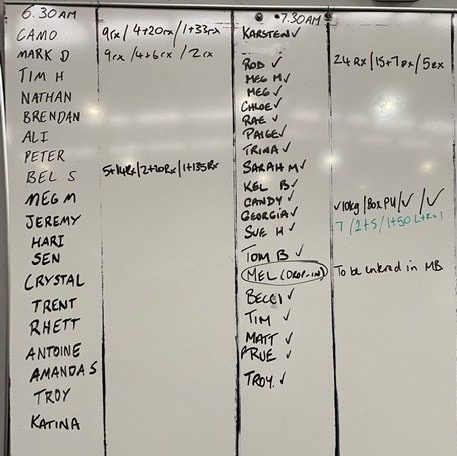 6.30AM
CAMO 9rx / 4+20rx / 1+33rx
MARK D 9rx / 4+6rx / 2rx
TIM H
NATHAN
BRENDAN
ALI
PETER
BEL S 5+14Rx / 2+20Rx / 1+135Rx
MEG M
JEREMY
HARI
SEN
CRYSTAL
TRENT
RHETT
ANTOINE
AMANDA S
TROY
KATINA
7.30AM
KARSTEN ✓
ROD ✓ 24Rx / 15+7Rx / 5Rx
MEG M ✓
MEG ✓
CHLOE ✓
RAE ✓
PAIGE ✓
TRINA ✓
SARAH M ✓
KEL B ✓
CANDY ✓ ✓10kg / Box PU / ✓ / ✓
GEORGIA ✓ 7 / 2+5 / 1+50
SUE H ✓
TOM B ✓
MEL (DROP-IN) To be entered in MB
BECCI ✓
TIM ✓
MATT ✓
PRUE ✓
TROY ✓